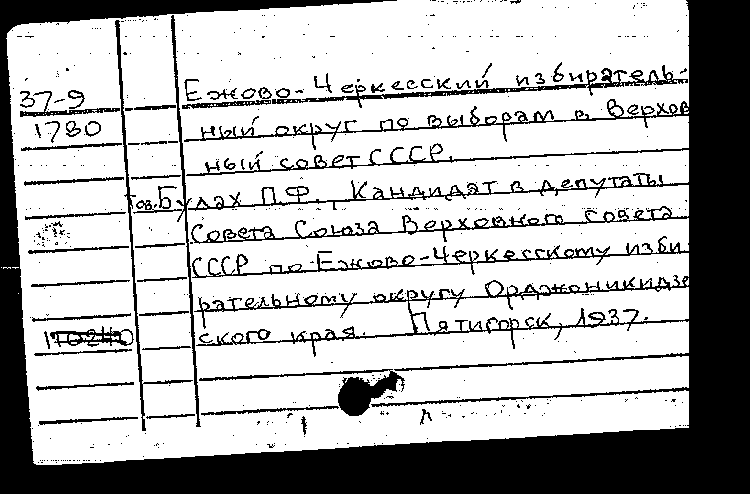 37-9 Ежово-Черкесский избиратель-
1780 ный округ по выборам в Верхов
ный совет СССР.
Тов. Булах П.Ф., Кандидат в депутаты
Совета Союза Верховного Совета
СССР по Ежово-Черкесскому изби
рательному округу Орджоникидзе
ского края. Пятигорск, 1937.